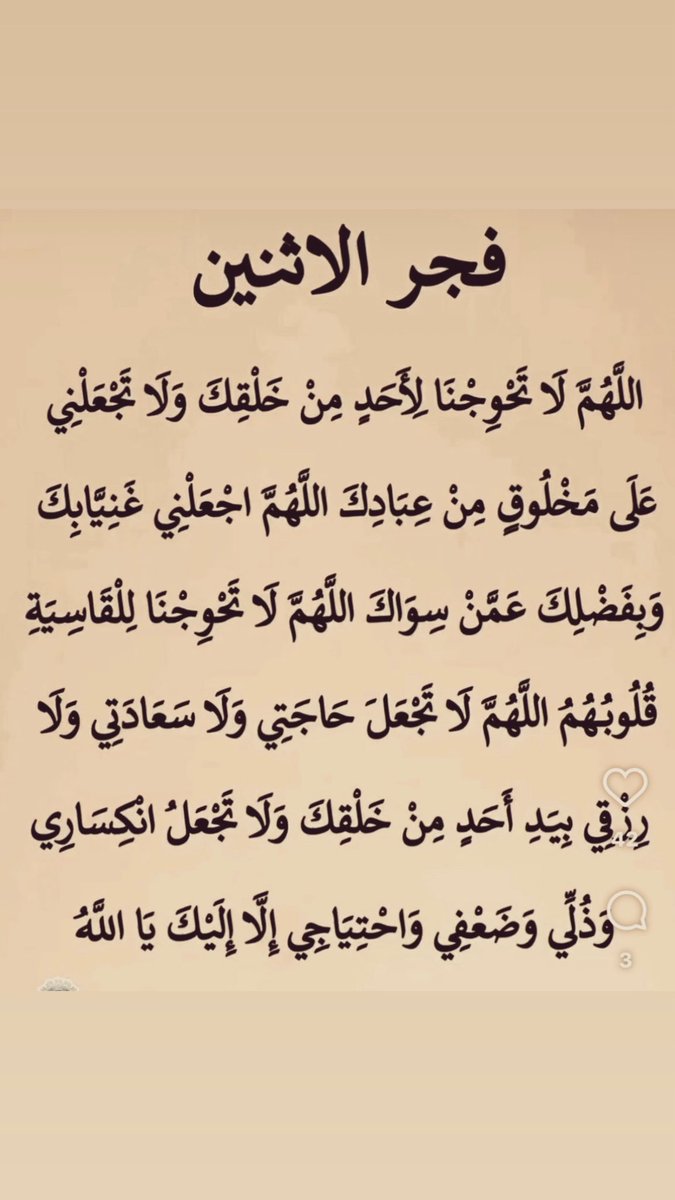 فجر الاثنين
اللَّهُمَّ لَا تَحْوِجْنَا لِأَحَدٍ مِنْ خَلْقِكَ وَلَا تَجْعَلْنِي
عَلَى مَخْلُوقٍ مِنْ عِبَادِكَ اللَّهُمَّ اجْعَلْنِي غَنِيَّابِكَ
وَبِفَضْلِكَ عَمَّنْ سِوَاكَ اللَّهُمَّ لَا تَحْوِجْنَا لِلْقَاسِيَةِ
قُلُوبُهُمُ اللَّهُمَّ لَا تَجْعَلَ حَاجَتِي وَلَا سَعَادَتِي وَلَا
رِزْقِي بِيَدِ أَحَدٍ مِنْ خَلْقِكَ وَلَا تَجْعَلُ انْكِسَارِي
42
وَذُلِّي وَضَعْفِي وَاحْتِيَاجِي إِلَّا إِلَيْكَ يَا اللَّهُ
3